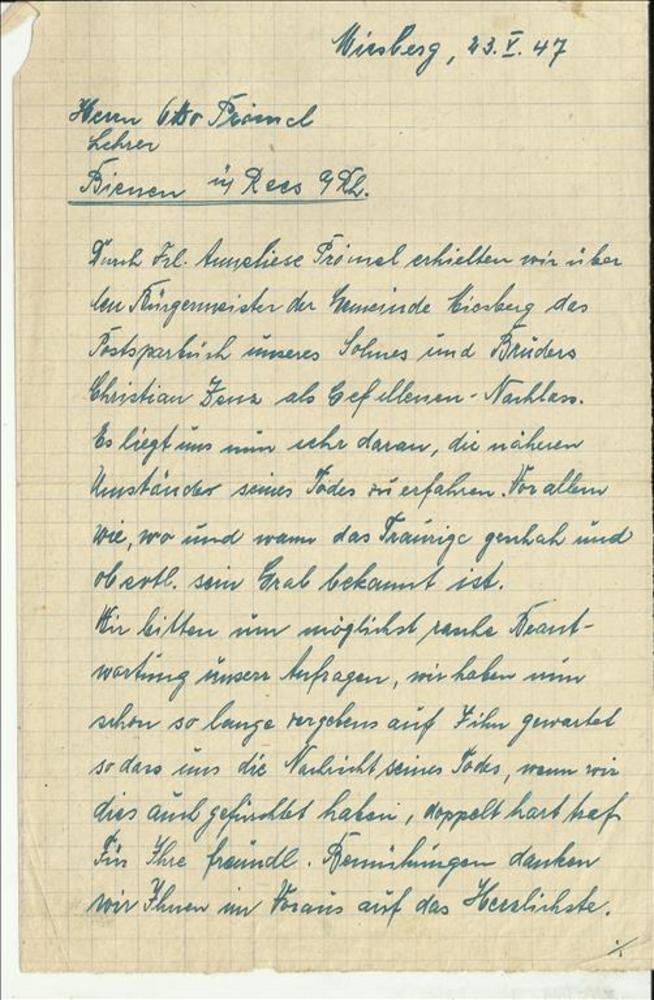 Wirsberg, 23.V.47
Herrn Otto Prömel
Lehrer
Bienen ü/ Rees 9 Rh.
Durch Frl. Anneliese Prömel erhielten wir über
den Bürgermeister der Gemeinde das
Postsparbuch unseres Sohnes und Bruders
Christian Zenz als Gefallenen-Nachlass.
Es liegt uns nun sehr daran, die näheren
Umstände seines Todes zu erfahren. Vor allem
wie, wo und wann das Traurige geschah und
ob evtl. sein Grab bekannt ist.
Wir bitten um möglichst rasche Beant-
wortung unserer Anfragen, wir haben nun
schon so lange vergebens auf ihn gewartet
so dass uns die Nachricht seines Todes, wenn wir
dies auch gefürchtet haben, doppelt hart traf
Für Ihre freundl. Bemühungen danken
wir Ihnen im Voraus auf das Herzlichste.
./.